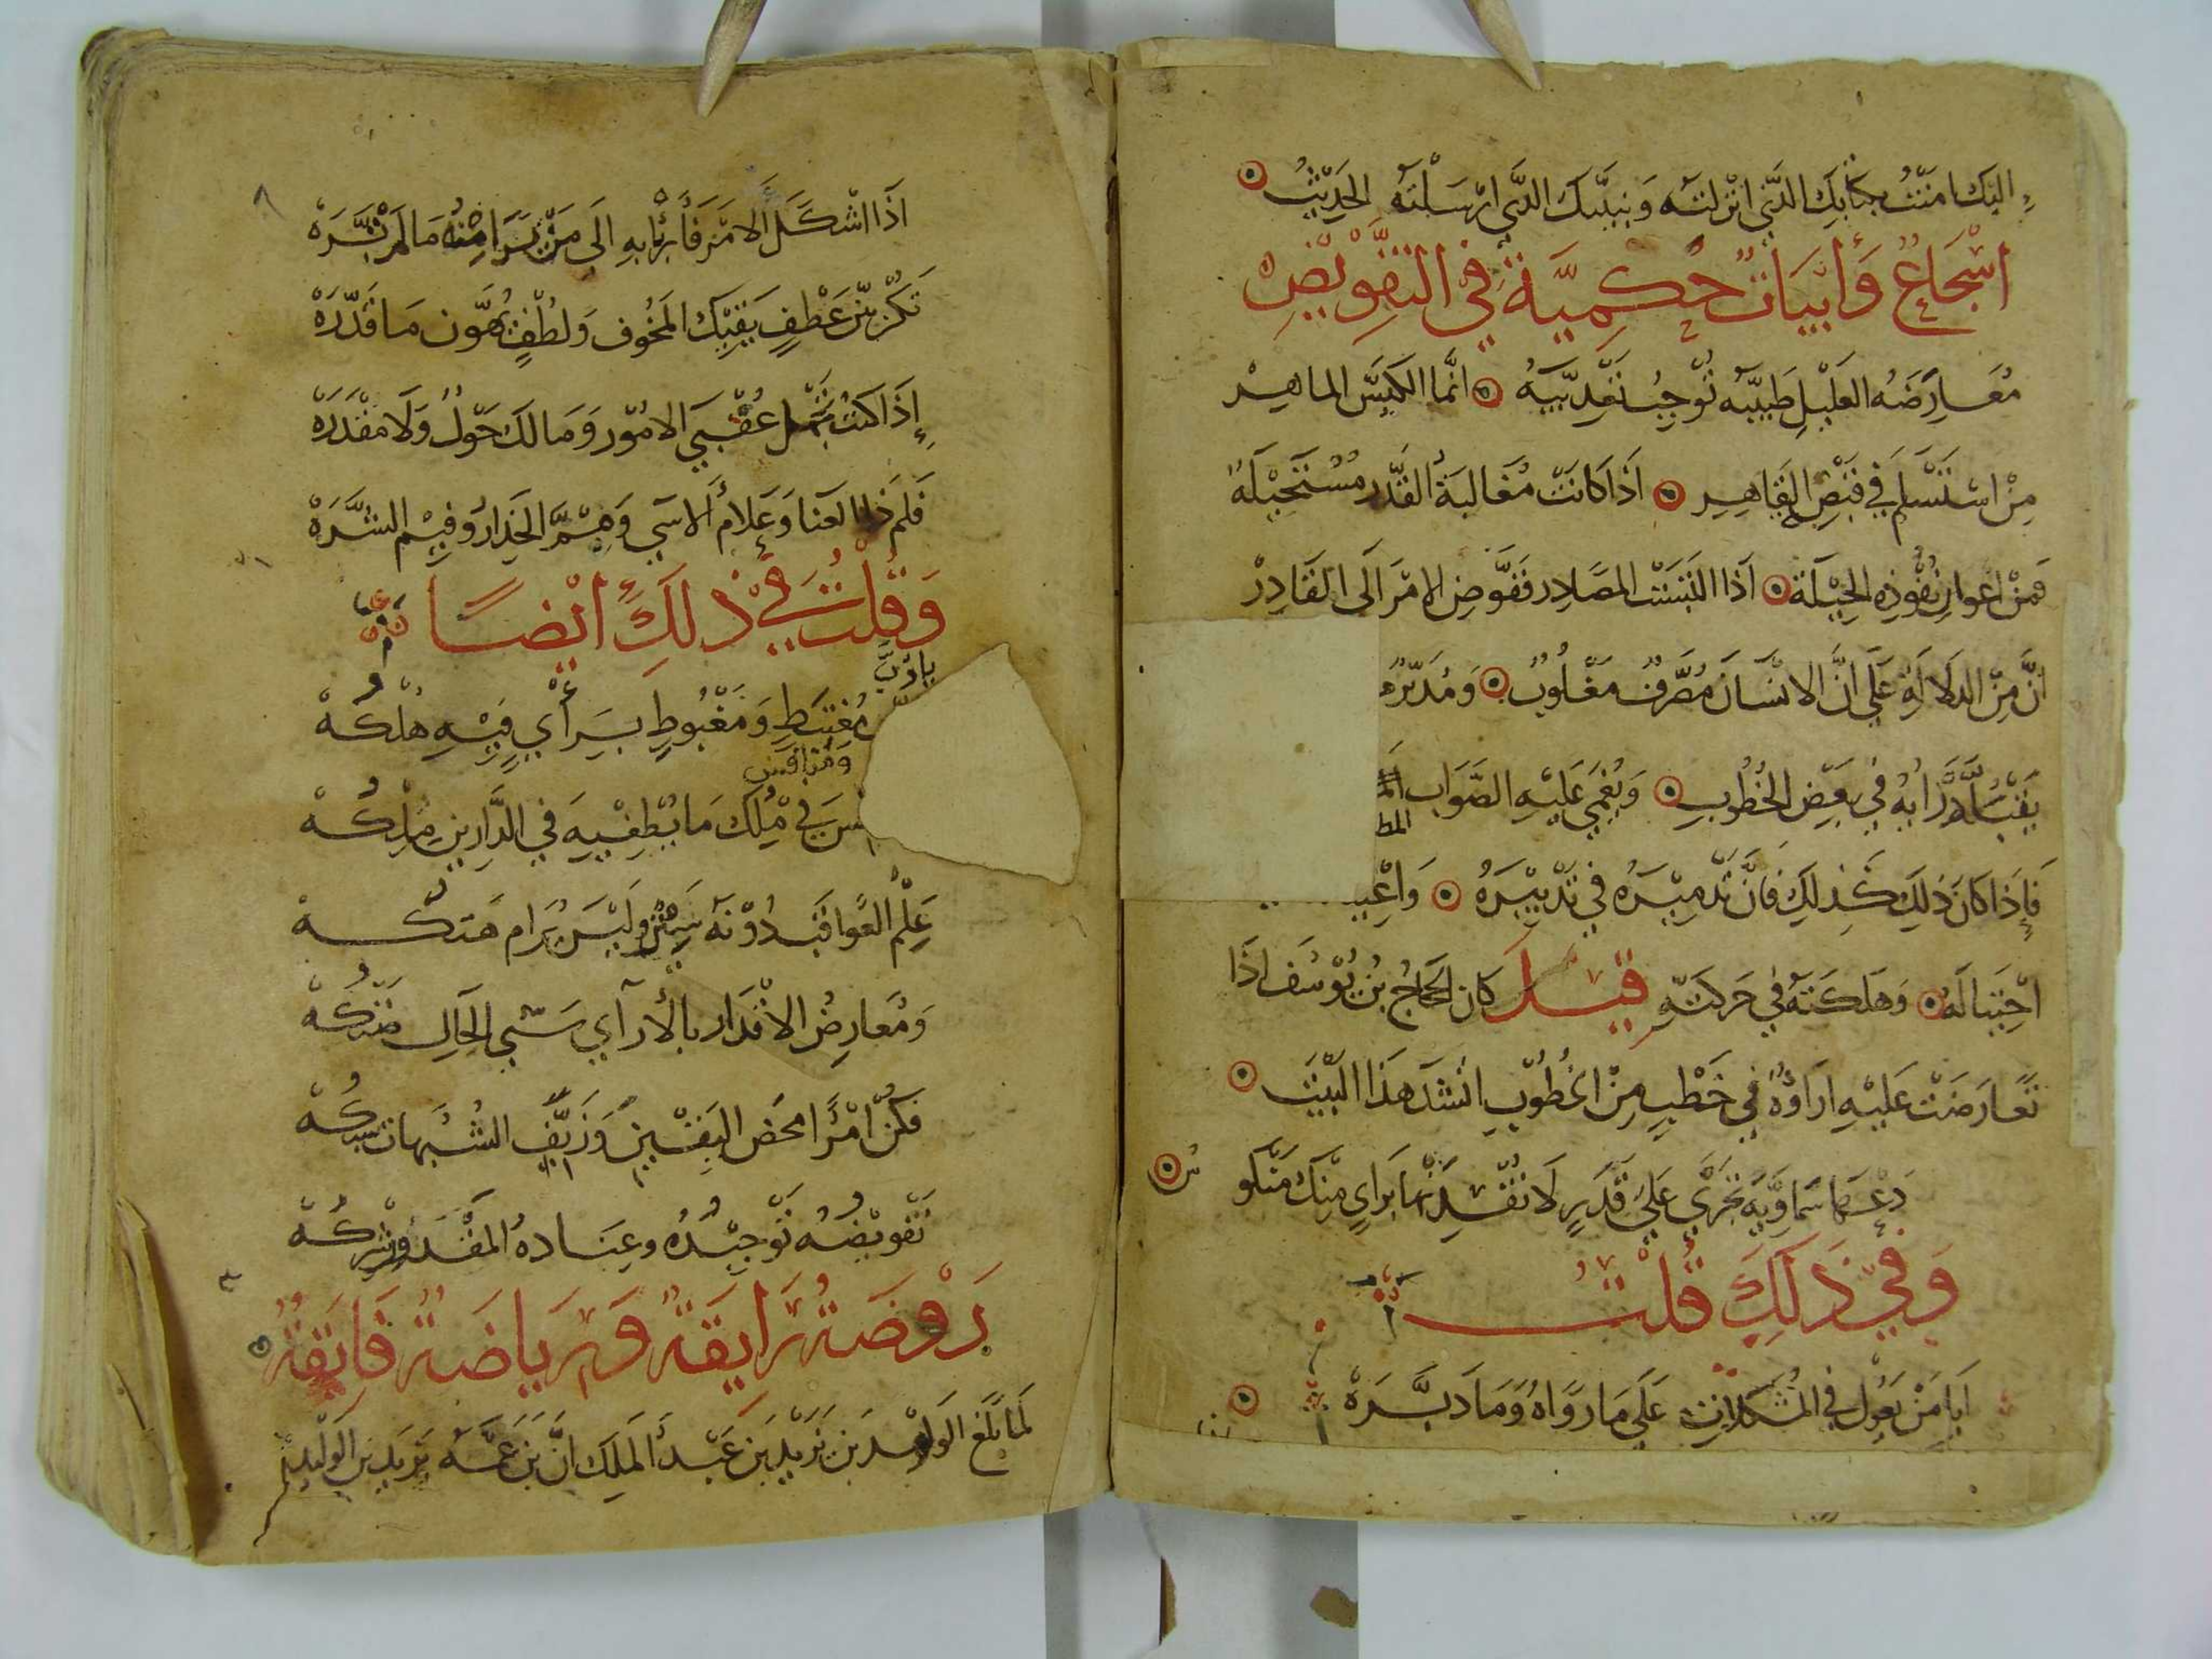 اليك امنت بكتابك الذي انزلته وبنبيك الذي ارسلته الحديث
اسجاع وابيات حكمية في التفويض
معارضة العليل طبيبه توجب تعذيبه انما الكيس الماهر
من استسلم في قبض القاهر اذا كانت مغالبة القدر مستحيلة
فمن اعوان نفوذه الحيلة اذا التبست المصادر ففوض الامر الى القادر
ان من الدلالة على ان الانسان مصرف مغلوب ومدبر
رايه في بعض الخطوب ويعمى عليه الصواب المط
فاذا كان ذلك كذلك فان تدميره في تدبيره واغتيا
احتياله وهلكته في حركته قيل كان الحجاج بن يوسف اذا
تعارضت عليه اراؤه في خطب من الخطوب انشد هذا البيت
دعها سماوية تجري على قدر لا تفسدنها براي منك منكو س
وفي ذلك قلت
ايا من يعول في المشكلات على ما رواه وما دبره
اذا
اذا اشكل الامر فابرا به الى من يرا منه ما لم تره
تكن بين عطف يقيك المخوف ولطف يهون ما قدره
إذا كنت تجهل عقبى الامور وما لك حول ولا مقدره
فلم ذا العنا وعلام الاسى ومم الحذار وفيم الشره
وقلت في ذلك ايضا
يا رب مغتبط ومغبوط براي فيه هلكه
ومنافس في ملك ما يطغيه في الدارين ملكه
علم العواقب دونه ستر وليس يرام هتكه
ومعارض الاقدار بالأرآي سيى الحال ضنكه
فكن امرا محض اليقين وزيف الشبهات سبكه
تفويضه توحيده وعناده المقدور شركه
روضة رايقة ورياضة فايقة
لما بلغ الوليد بن يزيد بن عبد الملك ان بن عمه يزيد بن الوليد